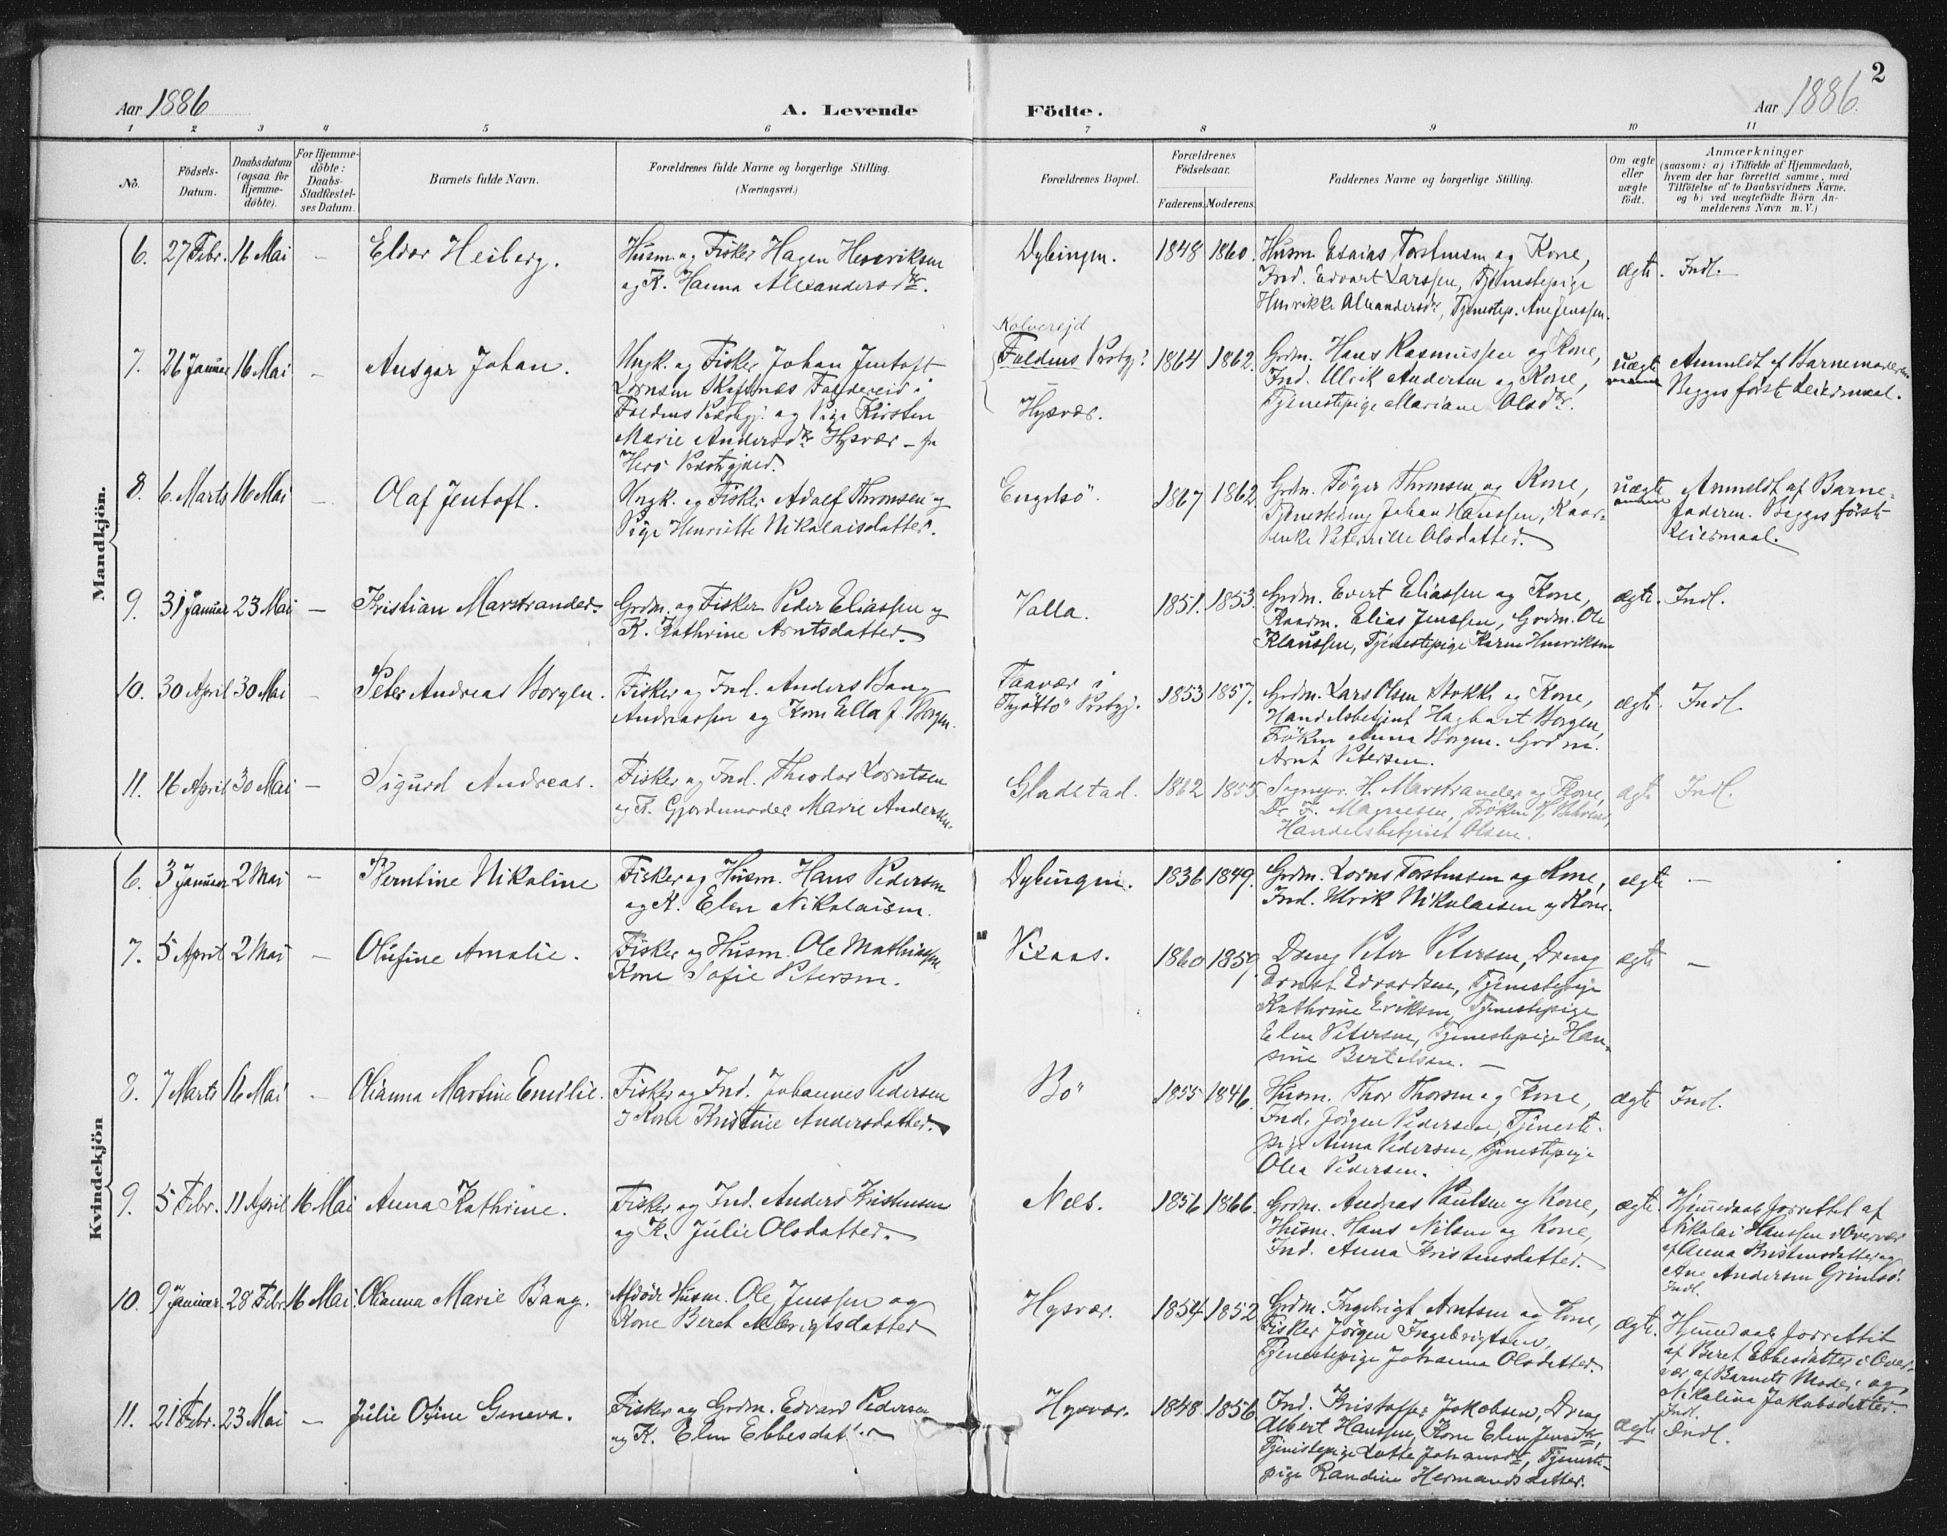 2
Aar 1886
A. Levende Födte.
Aar 1886
1 2 3 4 5 6 7 8 9 10 11
No.
Födsels-Datum.
Daabsdatum (ogsaa for Hjemme-döbte).
For Hjemme-döbte: Daabs-Stadfæstel-ses Datum.
Barnets fulde Navn.
Forældrenes fulde Navne og borgerlige Stilling.
(Næringsvei.)
Forældrenes Bopæl.
Forældrenes Födselsaar.
Faderens. Moderens.
Faddernes Navne og borgerlige Stilling.
Om ægte eller uægte födt.
Anmærkninger
(saasom: a) i Tilfælde af Hjemmedaab,
hvem der har forrettet samme, med
Tilföielse af to Daabsvidners Navne,
og b) ved uægtefödte Börn An-
melderens Navn m. V.)
Mandkjön.
6. 27 Febr. 16 Mai – Eldor Heiberg. Husm. og Fisker Hagen Henriksen
og K. Hanna Alexandersdtr.
Dybingen. 1848 1860. Husm. Esaias Torstensen og Kone,
Ind. Edvart Larssen, Tjenestepige
Henrikke Alexandersdtr, Tjenestep. Ane Jenssen.
ægte. Indl.
7. 26 Januar 16 Mai – Ansgar Johan. Ungk. og Fisker Johan Jentoft
Lornsen Foldereid i
Foldens Præstgj. og Pige Kirsten
Marie Andersdtr Hysvær – fra
Herö Præstegjæld.
Kolvereid
Foldens Præstgj.
Hysvær.
1864 1862. Grdm. Hans Rasmussen og Kone,
Ind. Ulrik Andersen og Kone,
Tjenestepige Mariane Olsdtr.
uægte Anmeldt af Barnemoderen
Begges först Leiermaal.
8. 6. Marts 16 Mai – Olaf Jentoft. Ungk. og Fisker Adolf Thomsen og
Pige Henriette Nikolaisdatter.
Engelsö. 1867 1862 Grdm. Töger Thomsen og Kone,
Tjenestedreng Johan Hanssen, Kaar-
enke Peternille Olsdatter.
uægte Anmeldt af Barne-
faderen. Begges först
Leiermaal.
9. 31 Januar 23 Mai – Kristian Marstrander. Grdm. og Fisker Peder Eliassen og
K. Kathrine Arntsdatter.
Valla. 1851. 1853. Grdm. Evert Eliassen og Kone,
Kaarm. Elias Jenssen, Grdm. Ole
Klaussen, Tjenestepige Karen Henriksen
ægte. Indl.
10. 30 April 30 Mai – Peter Andreas Borgen. Fisker og Ind. Anders Bang
Andreassen og Kone Ella f. Borgen.
Taavær i
Tjöttö Præstgj.
1853 1857. Grdm. Lars Olsen Stokke og Kone,
Handelsbetjent Hagbart Borgen,
Fröken Anna Borgen. Grdm.
Arnt Petersen.
ægte. Indl.
11. 16 April 30 Mai – Sigurd Andreas. Fisker og Ind. Theodor Lorntsen
og K. Gjordmoder Marie Andersen.
Gladstad. 1862 1855 Sognepr. H. Marstrander og Kone,
Dr. F. Magnesen, Fröken J. Behrens,
Handelsbetjent Olsen.
ægte Indl.
Kvindekjön
6. 3 Januar 2 Mai – Berntine Nikoline Fisker og Husm. Hans Pedersen
og K. Elen Nikolaisen.
Dybingen. 1836 1849. Grdm. Lorns Torstensen og Kone,
Ind. Ulrik Nikolaisen og Kone.
ægte –
7. 5 April 2 Mai – Olufine Amalie. Fisker og Husm. Ole Mathiassen
Kone Sofie Petersen.
Vixaas. 1860 1859 Dreng Peter Petersen, Dreng
Ernst Edvardsen, Tjenestepige
Kathrine Eriksen, Tjenestepige
Elen Petersen, Tjenestepige Han-
sine Bertelsen. –
ægte –
8. 7 Marts 16 Mai – Olianna Martine Emilie. Fisker og Ind. Johannes Pedersen
og Kone Kristine Andersdatter.
Bö 1855 1846. Husm. Thor Thorsen og Kone,
Ind. Jörgen Pedersen, Tjeneste-
pige Anna Pedersen, Tjenestepige
Olea Pedersen.
ægte Indl.
9. 5 Febr. 11 April 16 Mai Anna Kathrine. Fisker og Ind. Anders Kristensen
og K. Julie Olsdatter.
Næs. 1856 1866. Grdm. Andreas Paulsen og Kone,
Husm. Hans Nilsen og Kone,
Ind. Anna Kristensdatter.
ægte. Hjemmedaab forrettet af
Nikolai Hanssen i Overvær
af Anna Kristensdatter og
Ane Andersen Grimsö.
Indl.
10. 9 Januar. 28 Febr. 16 Mai. Olianna Marie Bang. Afdöde Husm. Ole Jenssen og
Kone Beret Albrigtsdatter
Hysvær. 1854 1852 Grdm. Ingebrigt Arntsen og Kone,
Fisker Jörgen Ingebrigtsen,
Tjenestepige Johanna Olsdatter.
ægte. Hjemmedaab forrettet
af Beret Ebbesdatter i Over-
vær af Barnets Moder og
Nikolina Jakobsdatter.
Indl.
11. 21 Febr. 23 Mai – Julie Oline Geneva. Fisker og Grdm. Edvard Pedersen
og K. Elen Ebbesdatter
Hysvær. 1848. 1856. Ind. Kristoffer Jakobsen, Dreng
Albert Hanssen, Kone Elen Jensdtr,
Tjenestepige Lotte Johansdtr, Tjeneste-
pige Randine Hermandsdatter.
ægte Indl.